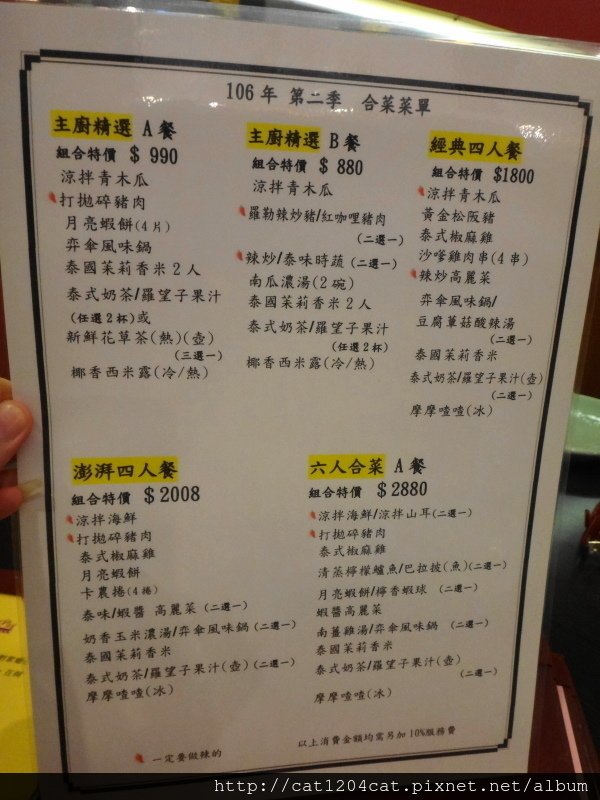 106年 第二季 合菜菜單
主廚精選 A餐
組合特價 $ 990
涼拌青木瓜
打拋碎豬肉
月亮蝦餅(4片)
弈傘風味鍋
泰國茉莉香米2人
泰式奶茶/羅望子果汁
(任選2杯)或
新鮮花草茶(熱)(壺)
(三選一)
椰香西米露(冷/熱)
主廚精選 B餐
組合特價 $ 880
涼拌青木瓜
羅勒辣炒豬/紅咖哩豬肉
(二選一)
辣炒/泰味時蔬(二選一)
南瓜濃湯(2碗)
泰國茉莉香米2人
泰式奶茶/羅望子果汁
(任選2杯)
椰香西米露(冷/熱)
經典四人餐
組合特價 $1800
涼拌青木瓜
黃金松阪豬
泰式椒麻雞
沙嗲雞肉串(4串)
辣炒高麗菜
弈傘風味鍋/
豆腐蕈菇酸辣湯
(二選一)
泰國茉莉香米
泰式奶茶/羅望子果汁(壺)
(二選一)
摩摩喳喳(冰)
澎湃四人餐
組合特價 $2008
涼拌海鮮
打拋碎豬肉
泰式椒麻雞
月亮蝦餅
卡農捲(4捲)
泰味/蝦醬 高麗菜(二選一)
奶香玉米濃湯/弈傘風味鍋(二選一)
泰國茉莉香米
泰式奶茶/羅望子果汁(壺)(二選一)
摩摩喳喳(冰)
六人合菜 A餐
組合特價 $2880
涼拌海鮮/涼拌山耳(二選一)
打拋碎豬肉
泰式椒麻雞
清蒸檸檬鱸魚/巴拉披(魚)(二選一)
月亮蝦餅/檸香蝦球 (二選一)
蝦醬高麗菜
南薑雞湯/弈傘風味鍋 (二選一)
泰國茉莉香米
泰式奶茶/羅望子果汁(壺)
(二選一)
摩摩喳喳(冰)
一定要做辣的
以上消費金額均需另加10%服務費
http://cat1204cat.pixnet.net/album